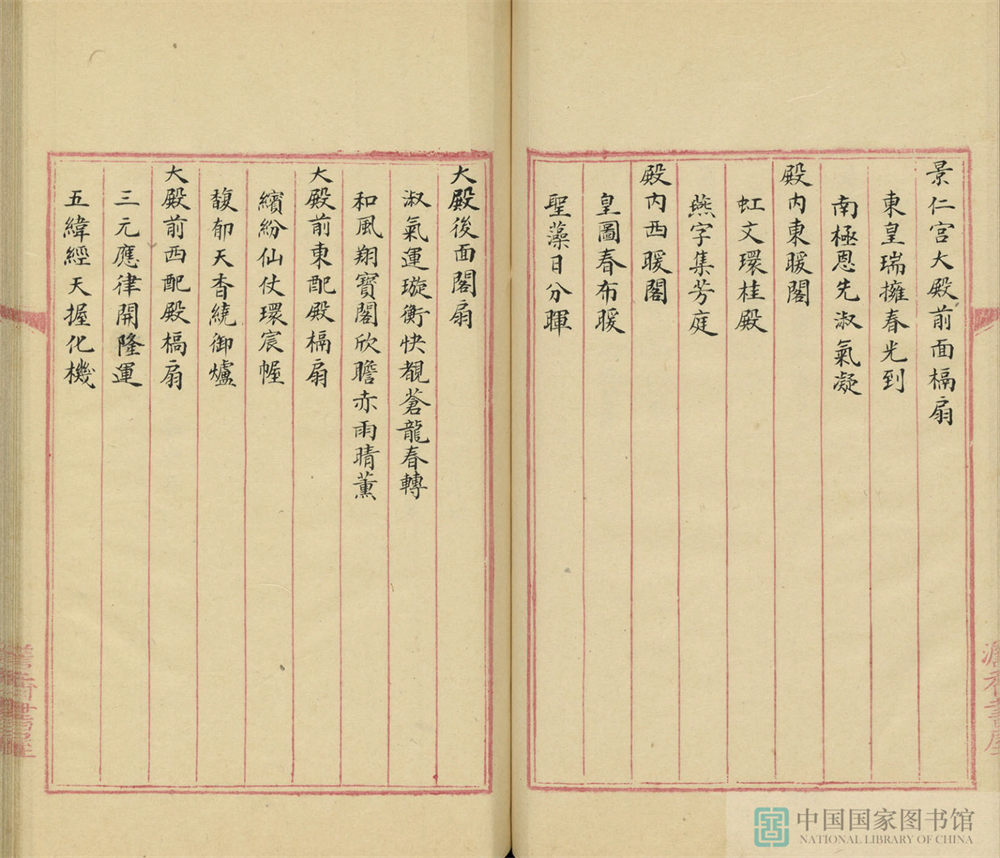 景仁宮大殿前面槅扇
東皇瑞擁春光到
南極恩先淑氣凝
殿內東暖閣
虹文環桂殿
燕字集芳庭
殿內西暖閣
皇圖春布暖
聖藻日分暉
大殿後面閣扇
淑氣運璇衡快覩蒼龍春轉
和風翔寶閣欣瞻赤雨晴薰
大殿前東配殿槅扇
繽紛仙仗環宸幄
馥郁天香繞御爐
大殿前西配殿槅扇
三元應律開隆運
五緯經天握化機
中国国家图书馆
NATIONAL LIBRARY OF CHINA